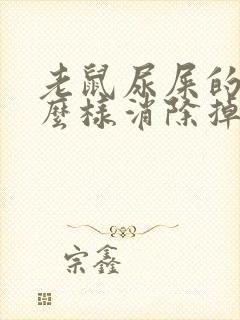 老鼠尿屎的
麼樣消除掉
宗鑫